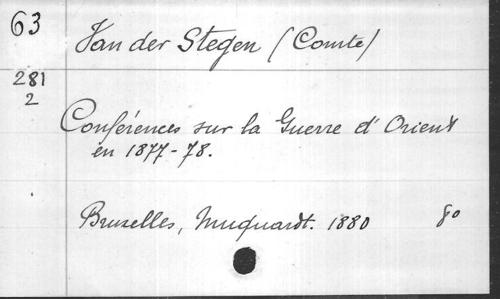 63
Van der Stegen (Comte)
281
2
Conférences sur la Guerre d'Orient
en 1877-78.
Bruxelles, Muquardt. 1880 8o